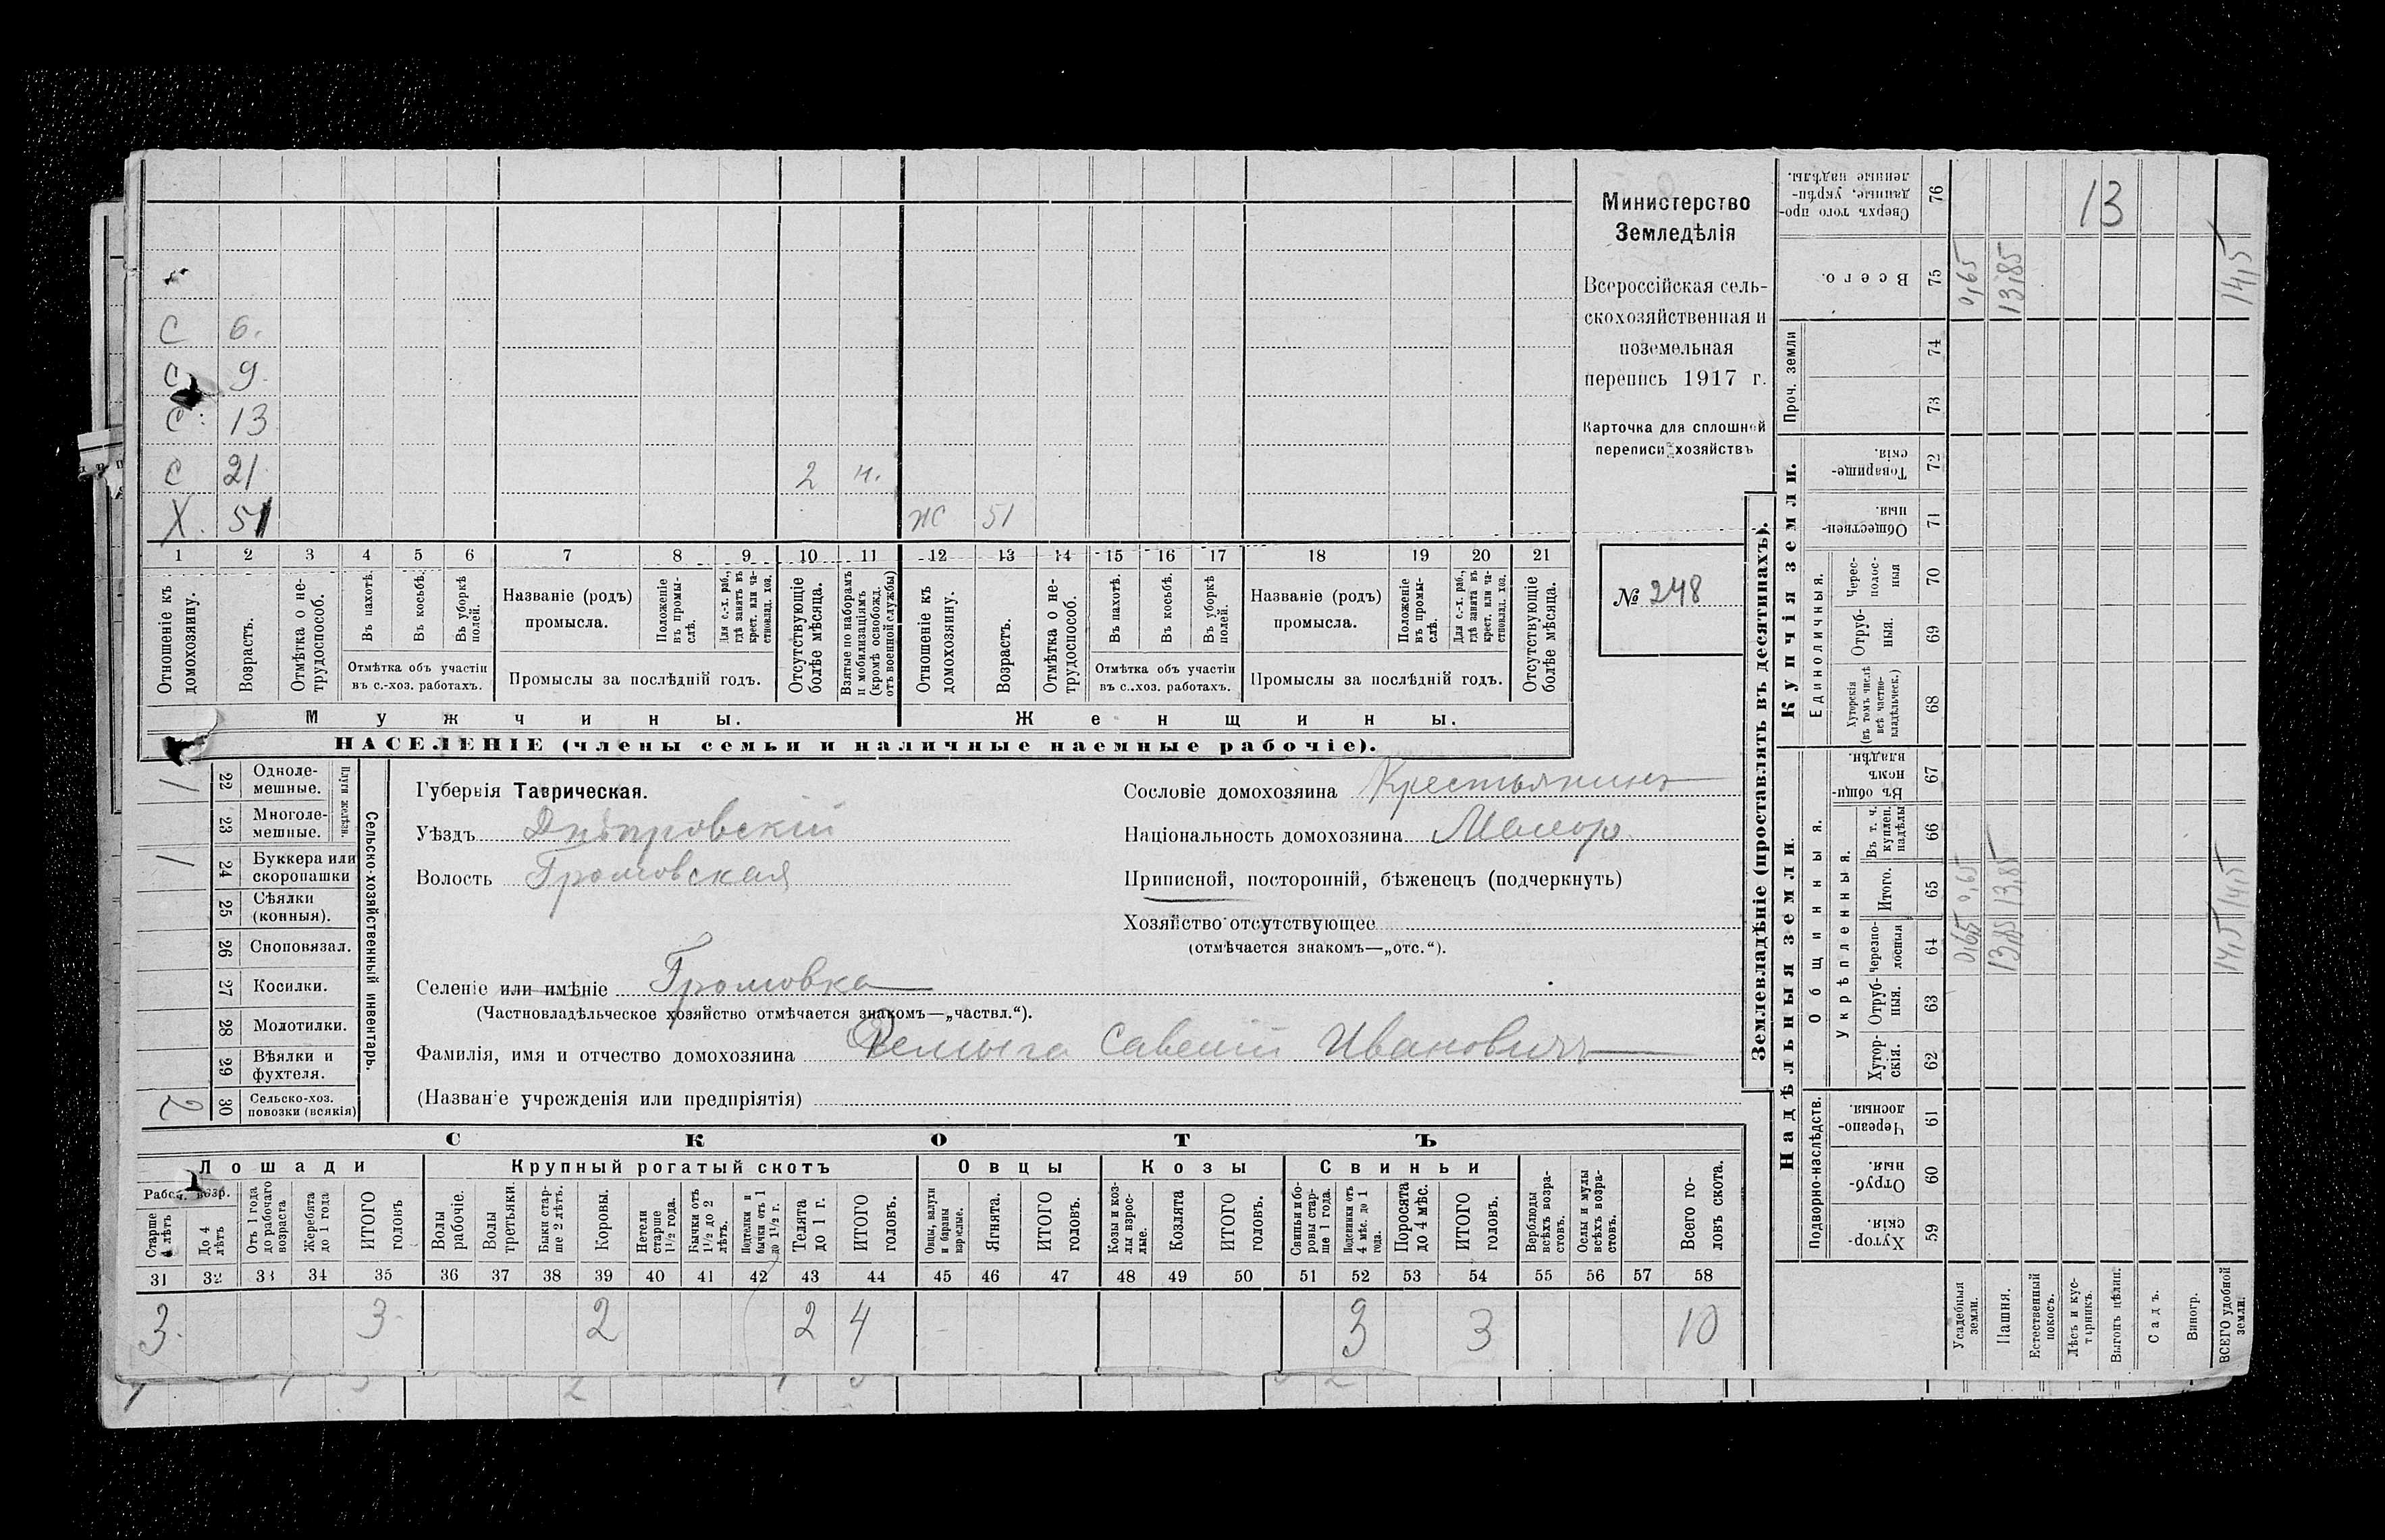 Министерство
Земледѣлія
Всероссійская сель-
скохозяйственная и
поземельная
перепись 1917 г.
Карточка для сплошной
переписи хозяйствъ
№ 248
С 6.
С 9.
С 13
С 21. 2 н.
Х. 51 ж 51
1 2 3 4 5 6 7 8 9 10 11 12 13 14 15 16 17 18 19 20 21
Отношеніе къ домохозяину.
Возрастъ.
Отмѣтка о не-трудоспособ.
Въ пахотѣ.
Въ косьбѣ.
Въ уборкѣ полей.
Отмѣтка объ участіи
въ с.-хоз. работахъ.
Названіе (родъ)
промысла.
Положеніе въ промы-слѣ.
Для с.-х. раб., гдѣ занятъ въ крест. или ча-стновлад. хоз.
Промыслы за послѣдній годъ.
Отсутствующіе болѣе мѣсяца.
Взятые по наборамъ и мобилизаціямъ (кромѣ освобожд. отъ военной службы)
Отношеніе къ домохозяину.
Возрастъ.
Отмѣтка о не-трудоспособ.
Въ пахотѣ.
Въ косьбѣ.
Въ уборкѣ полей.
Отмѣтка объ участіи
въ с.-хоз. работахъ.
Названіе (родъ)
промысла.
Положеніе въ промы-слѣ.
Для с.-х. раб., гдѣ занята въ крест. или ча-стновлад. хоз.
Промыслы за послѣдній годъ.
Отсутствующіе болѣе мѣсяца.
Мужчины.
Женщины.
НАСЕЛЕНІЕ (члены семьи и наличные наемные рабочіе).
Сельско-хозяйственный инвентарь.
Плуги желѣзн.
1 22 Одноле-мешные.
23 Многоле-мешные.
1 24 Буккера или скоропашки
25 Сѣялки (конныя).
26 Сноповязал.
27 Косилки.
28 Молотилки.
29 Вѣялки и фухтеля.
2 30 Сельско-хоз. повозки (всякія)
Губернія Таврическая.
Уѣздъ Днѣпровскій
Волость Громовская
Селеніе или имѣніе Громовка
(Частновладѣльческое хозяйство отмѣчается знакомъ—„частвл.“).
Фамилія, имя и отчество домохозяина Ивановичъ
(Названіе учрежденія или предпріятія)
Сословіе домохозяина Крестьянинъ
Національность домохозяина Малор.
Приписной, посторонній, бѣженецъ (подчеркнуть)
Хозяйство отсутствующее
(отмѣчается знакомъ—„отс.“).
СКОТЪ
Лошади
Крупный рогатый скотъ
Овцы
Козы
Свиньи
Рабоч. возр.
Старше 4 лѣтъ
До 4 лѣтъ
Отъ 1 года до рабочаго возраста
Жеребята до 1 года
ИТОГО головъ
Волы рабочіе.
Волы третьяки.
Быки стар-ше 2 лѣтъ.
Коровы.
Нетели старше 1½ года.
Бычки отъ 1½ до 2 лѣтъ.
Подтелки и бычки отъ 1 до 1½ г.
Телята до 1 г.
ИТОГО головъ.
Овцы, валухи и бараны взрослые.
Ягнята.
ИТОГО головъ.
Козы и коз-лы взрос-лые.
Козлята
ИТОГО головъ.
Свиньи и бо-ровы стар-ше 1 года.
Подсвинки отъ 4 мѣс. до 1 года.
Поросята до 4 мѣс.
ИТОГО головъ.
Верблюды всѣхъ возра-стовъ.
Ослы и мулы всѣхъ возра-стовъ.
Всего го-ловъ скота.
31 32 33 34 35 36 37 38 39 40 41 42 43 44 45 46 47 48 49 50 51 52 53 54 55 56 57 58
3. 3. 2 2 4 3 3 10
Землевладѣніе (проставлять въ десятинахъ).
Купчія земли.
Надѣльныя земли.
Сверхъ того про-данные, укрѣп-ленные надѣлы. 76 13
Всего. 75 0,65 13,85 14,5
Проч. земли 74 73
Товарище-скія. 72
Обществен-ныя. 71
Единоличныя.
Черес-полос-ныя 70
Отруб-ныя. 69
Хуторскія (въ томъ числѣ всѣ частно-владѣльческ.) 68
Общинныя.
Въ общи-номъ владѣн. 67
Укрѣпленныя.
Въ т. ч. куплен. надѣлы 66
Итого. 65 0,65 13,85 14,5
Черезпо-лосныя 64 0,65 13,85 14,5
Отруб-ныя. 63
Хутор-скія. 62
Подворно-наслѣдств.
Черезпо-лосныя. 61
Отруб-ныя. 60
Хутор-скія. 59
Усадебныя земли.
Пашня.
Естественный покосъ.
Лѣсъ и кус-тарникъ.
Выгонъ цѣлин.
Садъ.
Виногр.
ВСЕГО удобной земли.